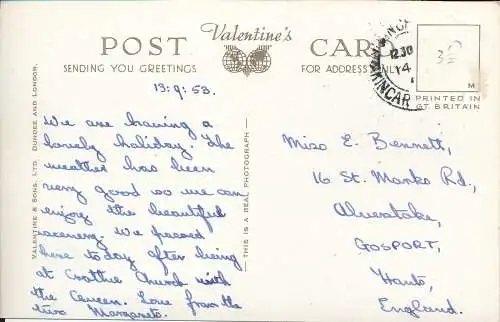 POST Valentine's CARD
SENDING YOU GREETINGS
FOR ADDRESS ONLY
12.30
14
KINCAR
3½
M
PRINTED IN
GT BRITAIN
VALENTINE & SONS. LTD. DUNDEE AND LONDON.
THIS IS A REAL PHOTOGRAPH
13.9.53.
We are having a
lovely holiday. The
weather has been
very good so we can
enjoy the beautiful
scenery. We passed
here today after being
at Crathie Church with
the Queen. Love from the
two Margarets.
Miss E. Bennett,
16 St. Marks Rd.,
Alverstoke,
GOSPORT,
Hants,
England.